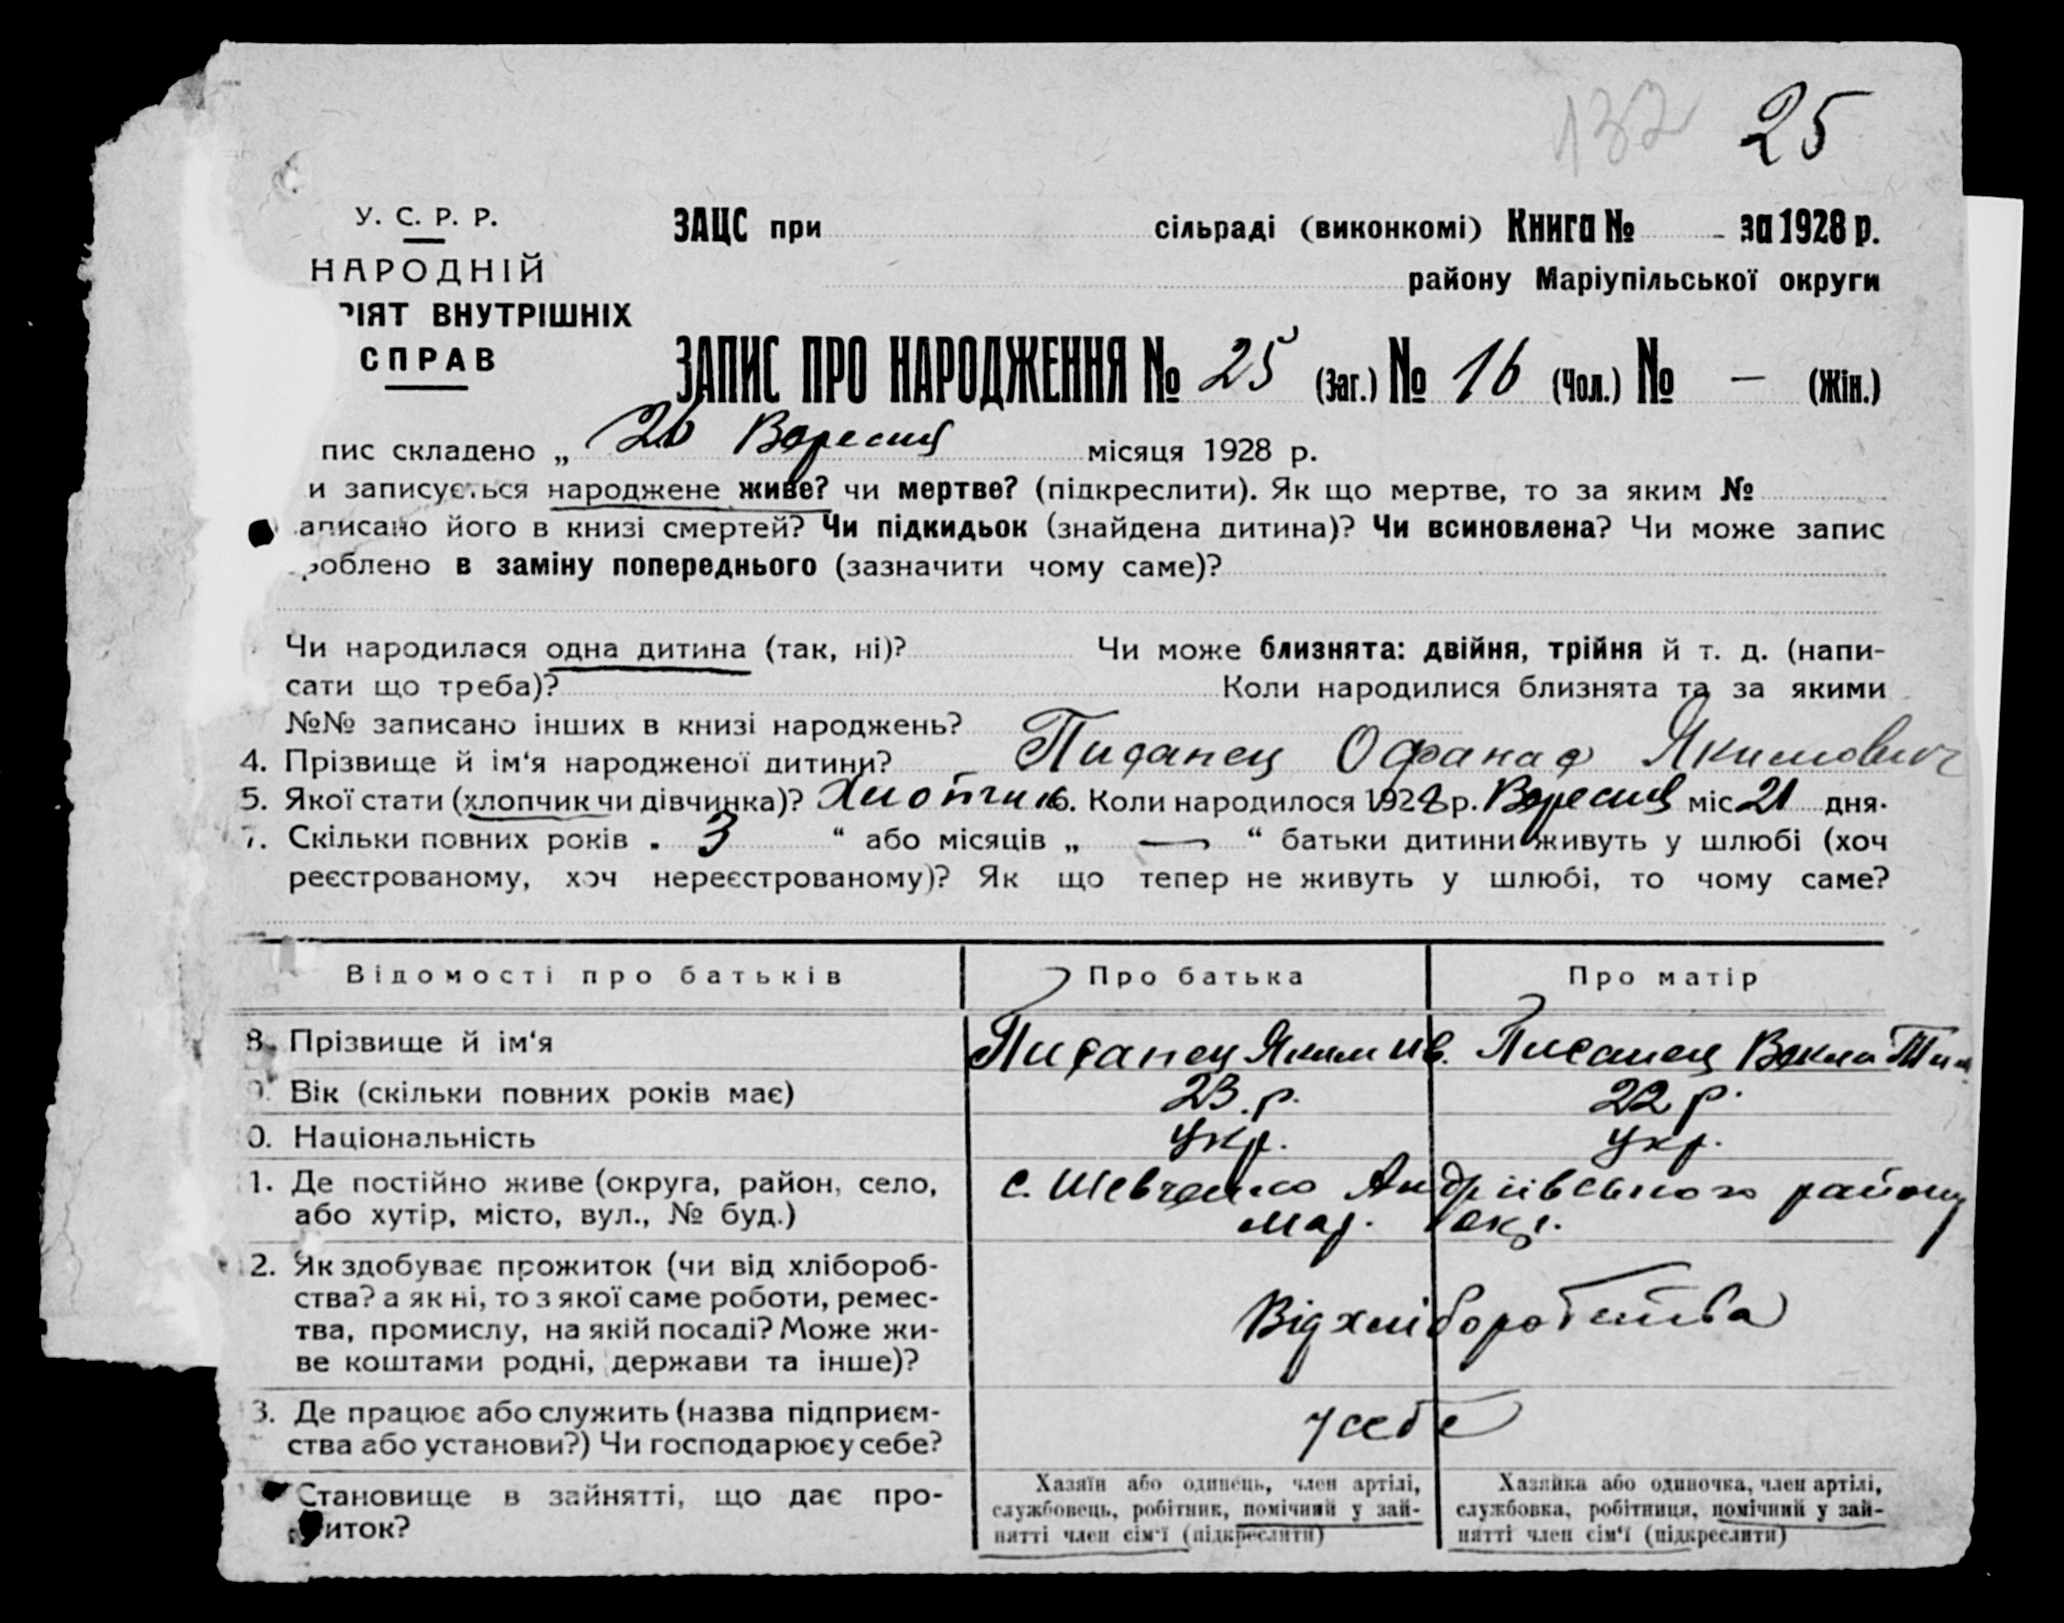 132 25
У. С. Р. Р.
НАРОДНІЙ
РІЯТ ВНУТРІШНІХ
СПРАВ
ЗАЦС при сільраді (виконкомі) Книга № за 1928 р.
району Маріупільської округи
ЗАПИС ПРО НАРОДЖЕННЯ № 25 (Заг.) № 16 (Чол.) № — (Жін.)
пис складено „ 26 Вересня місяця 1928 р.
и записується народжене живе? чи мертве? (підкреслити). Як що мертве, то за яким №
аписано його в книзі смертей? Чи підкидьок (знайдена дитина)? Чи всиновлена? Чи може запис
роблено в заміну попереднього (зазначити чому саме)?
Чи народилася одна дитина (так, ні)? Чи може близнята: двійня, трійня й т. д. (напи-
сати що треба)? Коли народилися близнята та за якими
№№ записано інших в книзі народжень?
4. Прізвище й ім‘я народженої дитини? Писанец Офанас Якимович
5. Якої стати (хлопчик чи дівчинка)? Хлопчик 6. Коли народилося 1928 р. Вересня міс 21 дня.
7. Скільки повних років „ 3 “ або місяців „ — “ батьки дитини живуть у шлюбі (хоч
реєстрованому, хоч нереєстрованому)? Як що тепер не живуть у шлюбі, то чому саме?
Відомості про батьків Про батька Про матір
8. Прізвище й ім‘я Писанец Яким Ив. Писанец Векла Тим
9. Вік (скільки повних років має) 23 р. 22 р.
0. Національність укр. укр.
1. Де постійно живе (округа, район, село,
або хутір, місто, вул., № буд.)
с. Шевченко Андріївського району
Мар. окр.
2. Як здобуває прожиток (чи від хлібороб-
ства? а як ні, то з якої саме роботи, ремес-
тва, промислу, на якій посаді? Може жи-
ве коштами родні, держави та інше)?
Від хліборобства
3. Де працює або служить (назва підприєм-
ства або установи?) Чи господарює у себе?
у себе
Становище в зайнятті, що дає про-
иток?
Хазяїн або одинець, член артілі,
службовець, робітник, помічний у зай-
нятті член сім‘ї (підкреслити)
Хазяйка або одиночка, член артілі,
службовка, робітниця, помічний у зай-
нятті член сім‘ї (підкреслити)